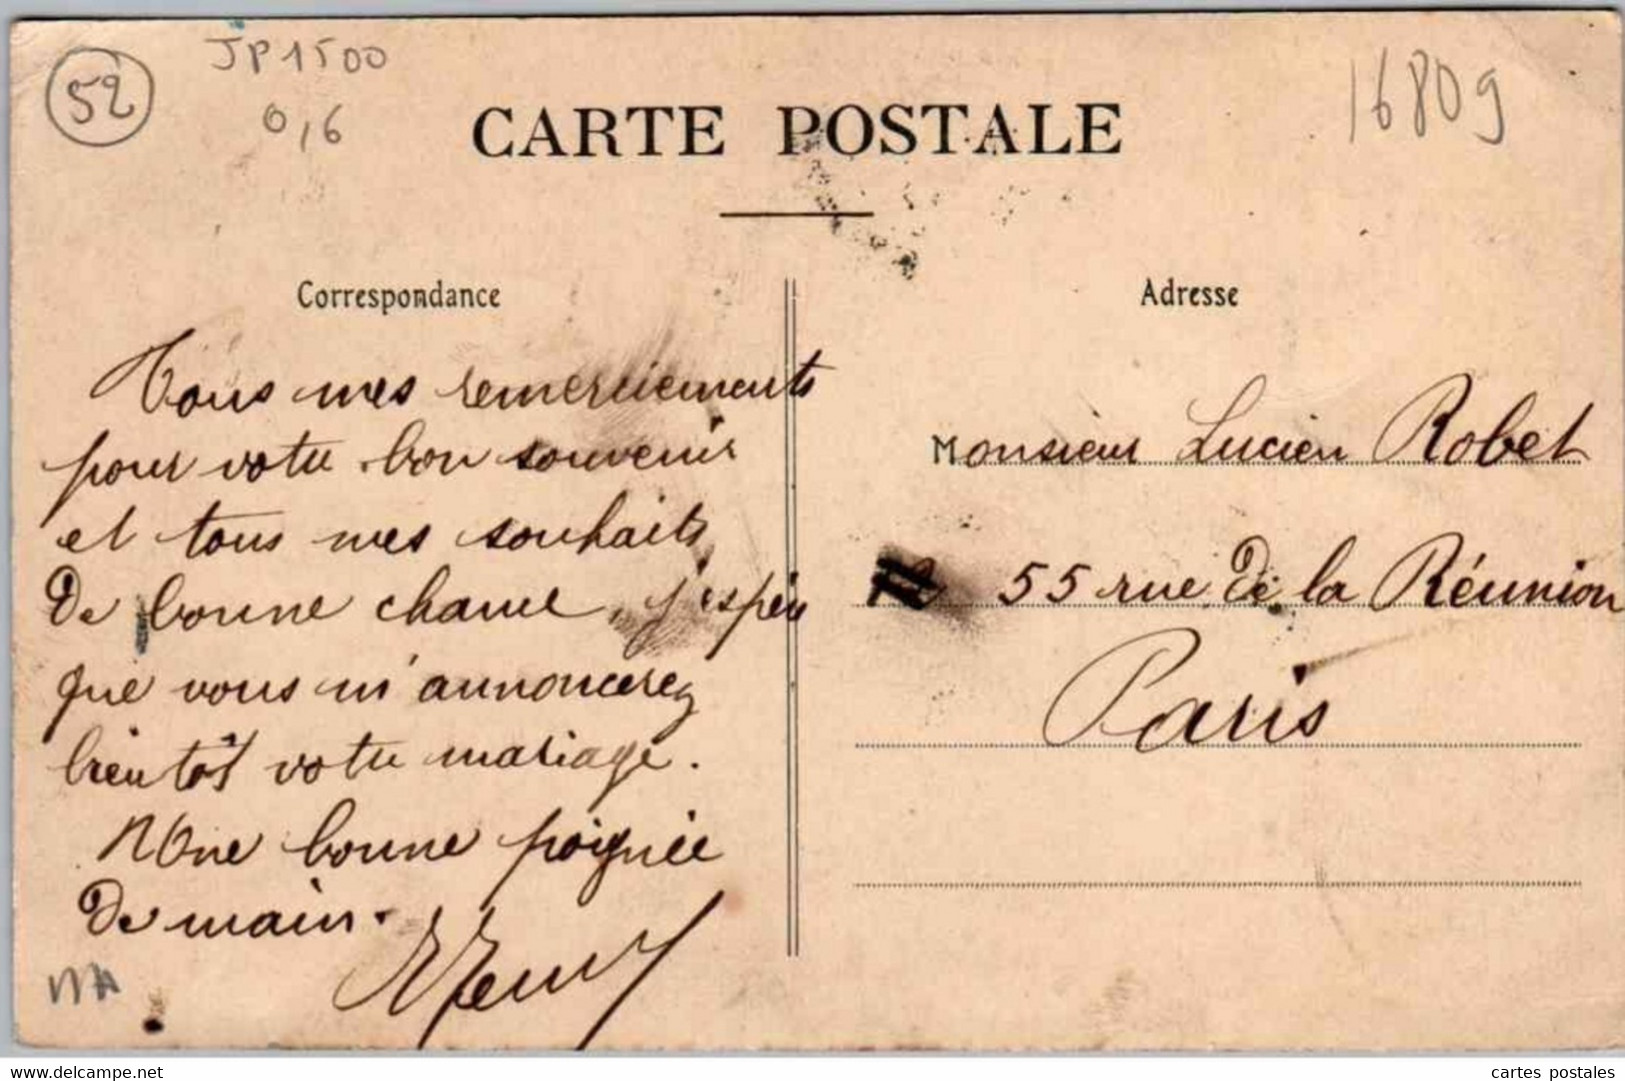 52
JP1500
0,6
16809
CARTE POSTALE
Correspondance
Adresse
Tous mes remerciements
pour votre bon souvenir
et tous mes souhaits
de bonne chance, j'espère
que vous m'annoncerez
bientôt votre mariage.
Une bonne poignée
de main.
Monsieur Lucien Robet
55 rue de la Réunion
Paris
www.delcampe.net/store/vmcp52
cartes postales